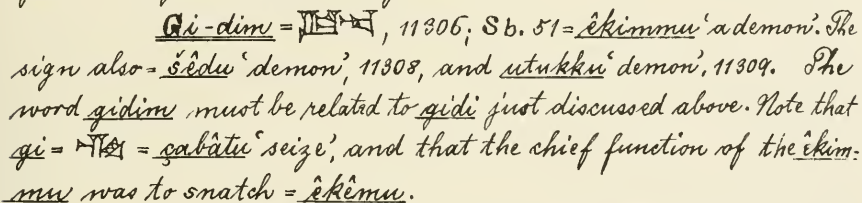 Gi-dim = 𒄇, 11306; Sb. 51 = êkimmu ‘a demon’. The
sign also = šêdu ‘demon’, 11308, and utukku ‘demon’, 11309. The
word gidim must be related to gidi just discussed above. Note that
gi = = çabâtu ‘seize’, and that the chief function of the êkim-
mu was to snatch = êkêmu.